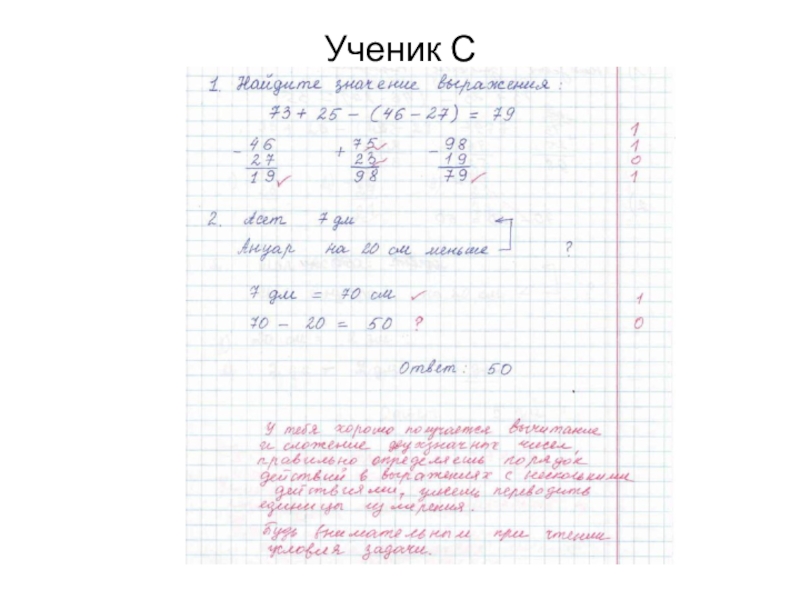 Ученик С
1. Найдите значение выражения:
73 + 25 - (46 - 27) = 79
- 46 + 75 - 98
27 23 19
19 98 79
1
1
0
1
2. Асет 7 дм
Ануар на 20 см меньше ?
7 дм = 70 см 1
70 - 20 = 50 ? 0
Ответ: 50
У тебя хорошо получается вычитание
и сложение двухзначных чисел,
правильно определяешь порядок
действий в выражениях с несколькими
действиями, умеешь переводить
единицы измерения.
Будь внимательным при чтении
условия задачи.